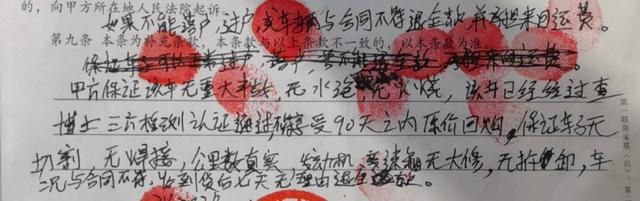 的，向甲方所在地人民法院起诉。
如果不能落户，过户，或车辆与合同不符退全款并承担来回运费。
第九条 本条为补充条款，本条款与以上条款不一致的，以本条款为准。
保证车 过户 落户 退全款 来回运费。
甲方保证该车无重大事故，无水泡，无火烧，该车已经经过查
博士三方检测认证通过享受90天之内原价回购，保证车子无
切割，无焊接，公里数真实 发动机 变速箱无大修，无拆卸，车
况与合同不符，收到货后七天无理由退全款。
第一联商家联（白），第二